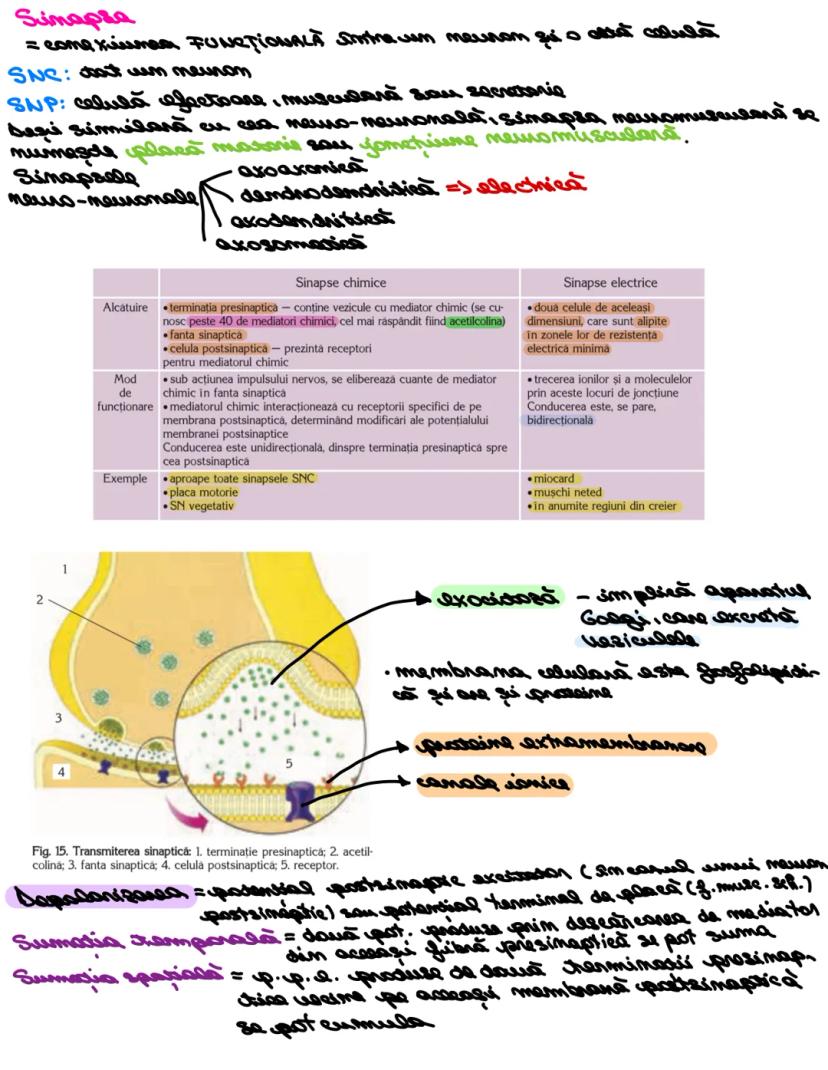 Sinapsa
= conexiunea FUNCȚIONALĂ între un neuron și o altă celulă
SNC: tot un neuron
SNP: celulă efectoare, musculară sau secretorie
Deși similară cu cea neuro-neuronală, sinapsa neuromusculară se
numește placă motorie sau joncțiune neuromusculară.
Sinapsele
neuro-neuronale
axoaxonică
dendrodendritică => electrică
axodendritică
axosomatică
Sinapse chimice
Sinapse electrice
Alcătuire
• terminația presinaptică — conține vezicule cu mediator chimic (se cu-
nosc peste 40 de mediatori chimici, cel mai răspândit fiind acetilcolina)
• fanta sinaptică
• celula postsinaptică — prezintă receptori
pentru mediatorul chimic
• două celule de aceleași
dimensiuni, care sunt alipite
în zonele lor de rezistență
electrică minimă
Mod
de
funcționare
• sub acțiunea impulsului nervos, se eliberează cuante de mediator
chimic în fanta sinaptică
• mediatorul chimic interacționează cu receptorii specifici de pe
membrana postsinaptică, determinând modificări ale potențialului
membranei postsinaptice
Conducerea este unidirecțională, dinspre terminația presinaptică spre
cea postsinaptică
• trecerea ionilor și a moleculelor
prin aceste locuri de joncțiune
Conducerea este, se pare,
bidirecțională
Exemple
• aproape toate sinapsele SNC
• placa motorie
• SN vegetativ
• miocard
• mușchi neted
• în anumite regiuni din creier
1
2
3
4
5
exocitoză – implică aparatul
Golgi, care excretă
veziculele
• membrana celulară este fosfolipidi-
că și are și proteine
proteine extramembranare
canale ionice
Fig. 15. Transmiterea sinaptică: 1. terminație presinaptică; 2. acetil-
colină; 3. fanta sinaptică; 4. celulă postsinaptică; 5. receptor.
Depolarizarea = potențial postsinaptic excitator (în cazul unui neuron
postsinaptic) sau potențial terminal de placă (f. musc. sch.)
Sumația temporală = două pot. produse prin descărcarea de mediator
din aceeași fibră presinaptică se pot suma
Sumația spațială = p.p.e. produse de două terminații presinap-
tice vecine pe aceeași membrană postsinaptică
se pot cumula